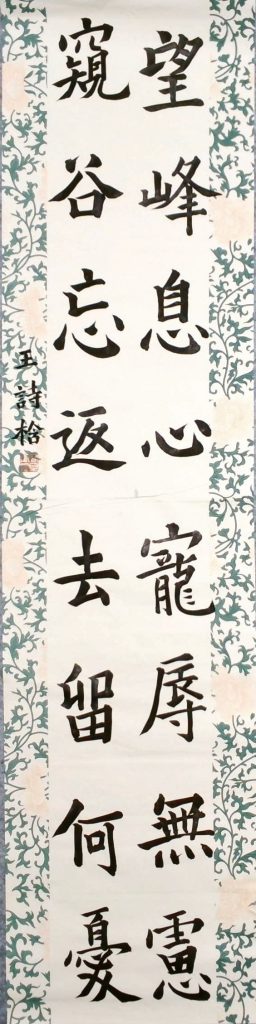 望峰息心寵辱無慮
窺谷忘返去留何憂
玉詩捨